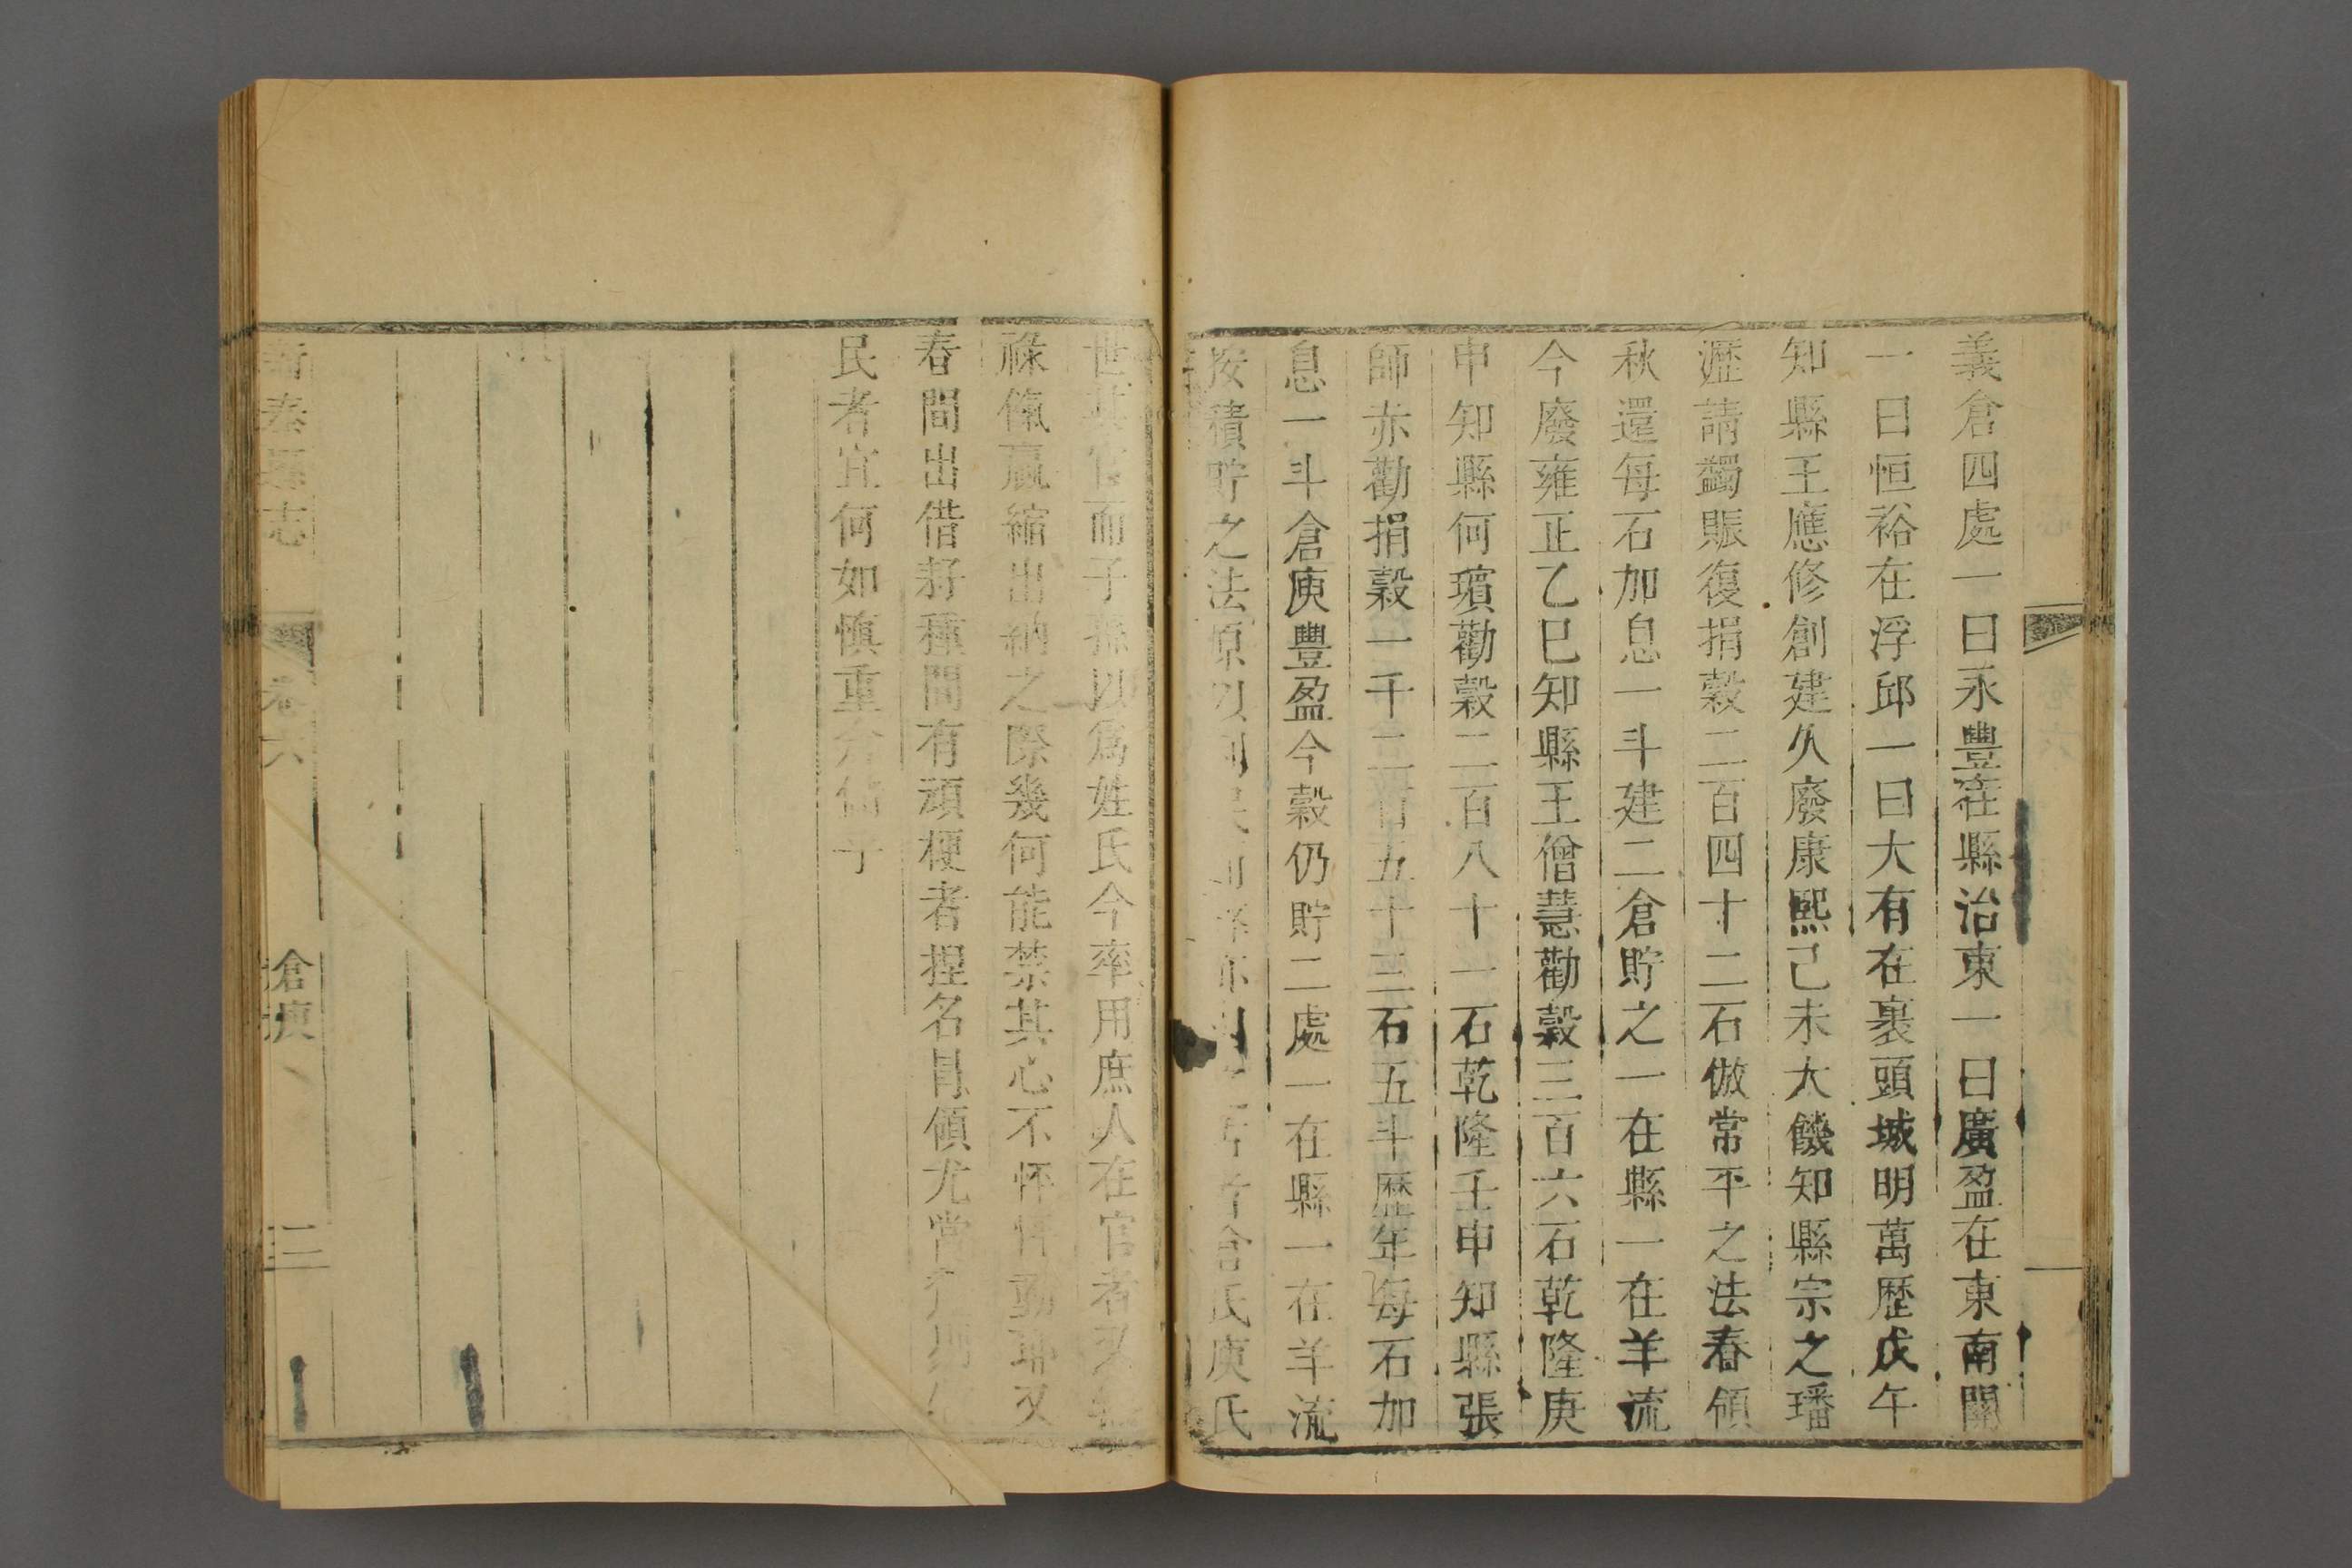 義倉四處一曰永豐在縣治東一曰廣盈在東南關
一曰恒裕在浮邱一曰大有在裹頭城明萬歷戊午
知縣王應修創建久廢康熙己未大饑知縣宗之璠
瀝請蠲賑復捐穀二百四十二石倣常平之法春領
秋還每石加息一斗建二倉貯之一在縣一在羊流
今廢雍正乙巳知縣王僧慧勸穀三百六石乾隆庚
申知縣何瑸勸穀二百八十一石乾隆壬申知縣張
師赤勸捐穀一千二百五十三石五斗歷年每石加
息一斗倉庾豐盈今穀仍貯二處一在縣一在羊流
按積貯之法原以利民倉氏庾氏
世其官而子孫以為姓氏今率用庶人在官者又無
祿餼贏縮出納之際幾何能禁其心不怦怦動耶又
春間出借籽種間有頑梗者捏名冒領尤當
民者宜何如慎重
新泰縣志 卷六 倉庾 三